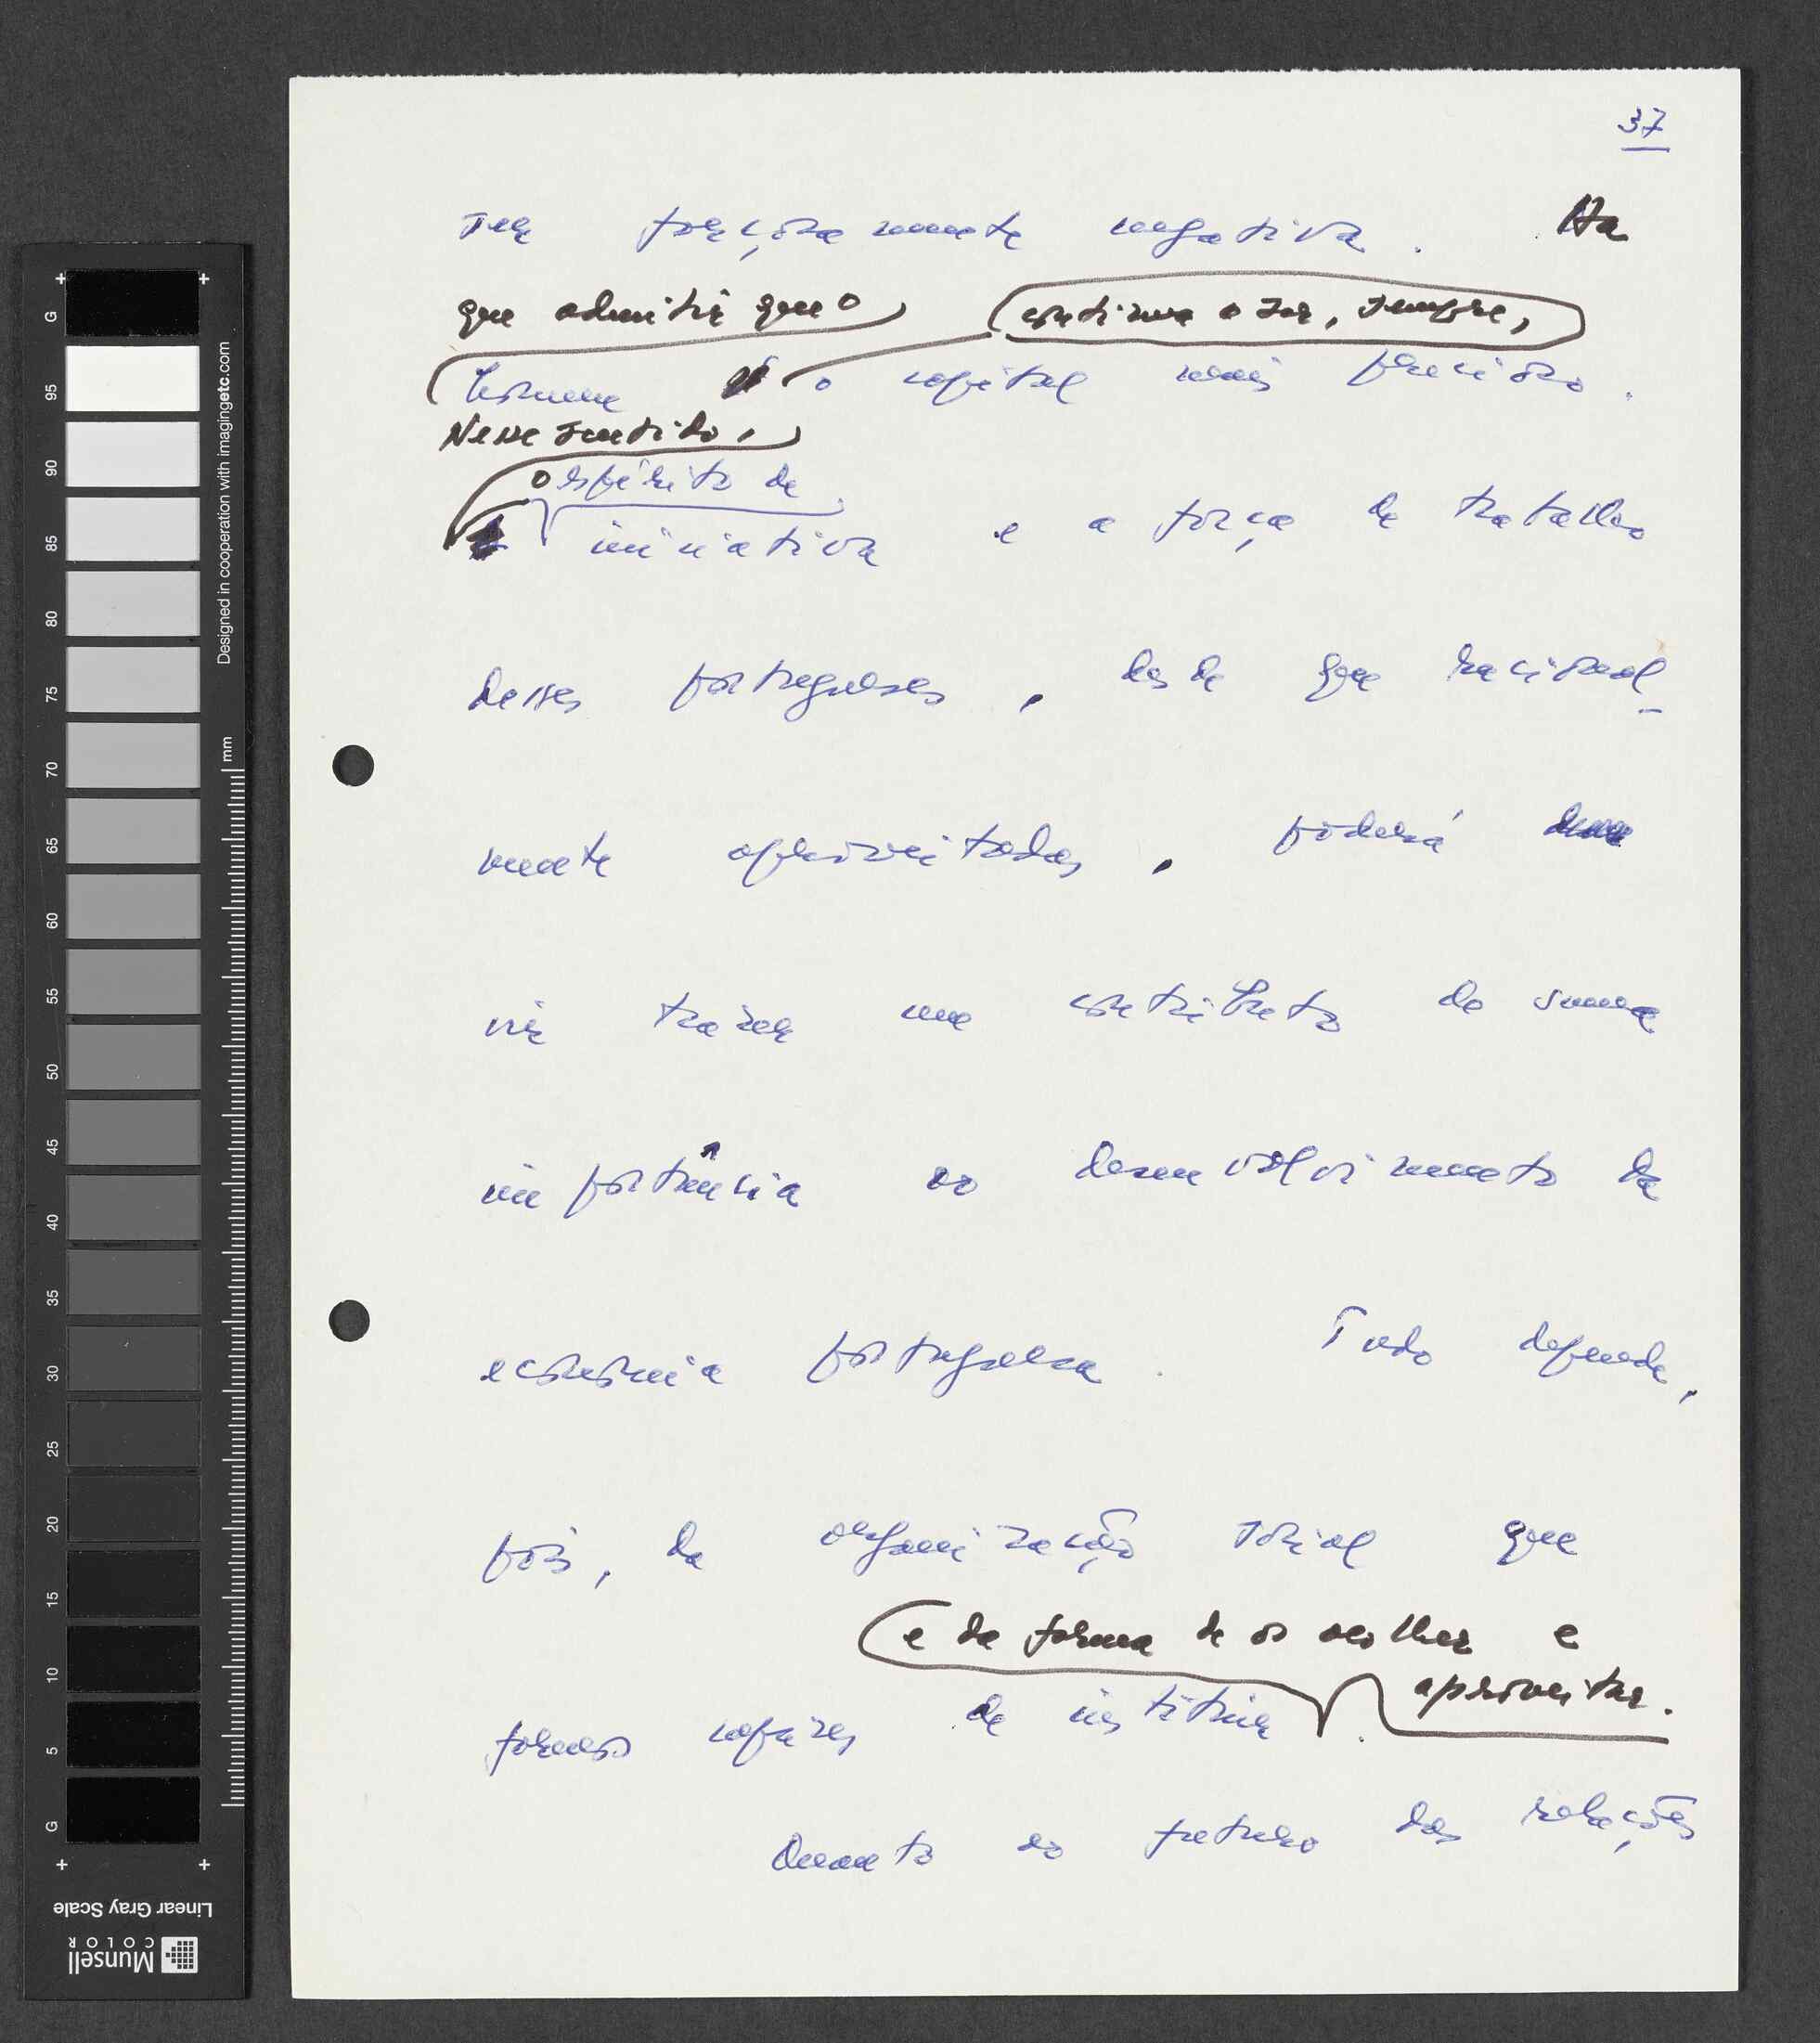 37
ser forçosamente negativa. Ha
que admitir que o continua a ser, sempre,
homem o capital mais precioso.
Nesse sentido,
o espírito de
iniciativa e a força de trabalho
desses portugueses, desde que racional-
mente aproveitados, poderá
vir trazer um contributo de suma
importância ao desenvolvimento da
economia portuguesa. Tudo depende,
pois, da organização social que
e da forma de os acolher e
aproveitar.
formos capazes de instituir.
Quanto ao futuro das relações
G
95
90
85
80
75
70
65
60
55
50
45
40
35
30
25
20
15
10
5
G
Designed in cooperation with imagingetc.com
mm
Linear Gray Scale
Munsell
COLOR